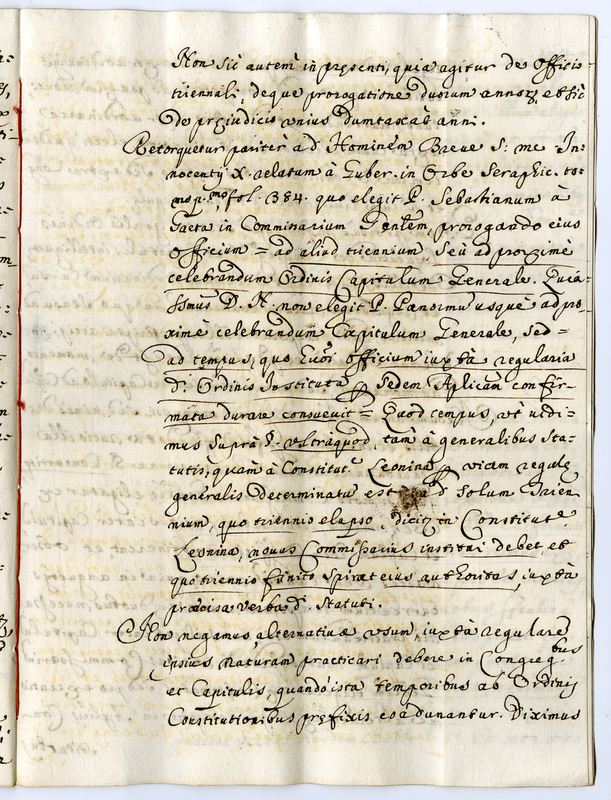 Non sic autem in presenti, quia agitur de Officio
triennali, deque prorogatione duorum annorũ, et sic
de prejudicio unius dumtaxat anni.
Retorquetur pariter ad Hominem Breve S: me: In-
nocentij X. relatum à Guber. in Orbe Seraphic. to:
fol. 384. quo elegit P. Sebastianum à
Gaeta in Commissarium Gen̄lem, prorogando ejus
officium = ad aliud triennium, seu ad proxime
celebrandum Ordinis Capitulum Generale. Quia
Ssmus D. N. non elegit P. Panormũ usque ad pro-
xime celebrandum Capitulum Generale, sed =
ad tempus, quo officium juxta regularia
d. Ordinis Instituta per Sedem Aplicam confir-
mata durare consuevit = Quod tempus, ut vidi-
mus supra §. ultraquod, tam à generalibus Sta-
tutis, quam à Constitut. Leonina per viam regulę
generalis determinatũ est ad solum Trien
nium, quo triennio elapso, dicitr in Constitut.e
Leonina, novus Commissarius institui debet, et
quo triennio finito spiret ejus authoritas, juxta
præcisa verba d. Statuti.
Non negamus, alternativæ usum, juxta regularē
ipsius naturam practicari debere in Congreg.bus
et Capitulis, quando ista temporibus ab Ordinis
Constitutionibus prefixis coadunantur. Diximus